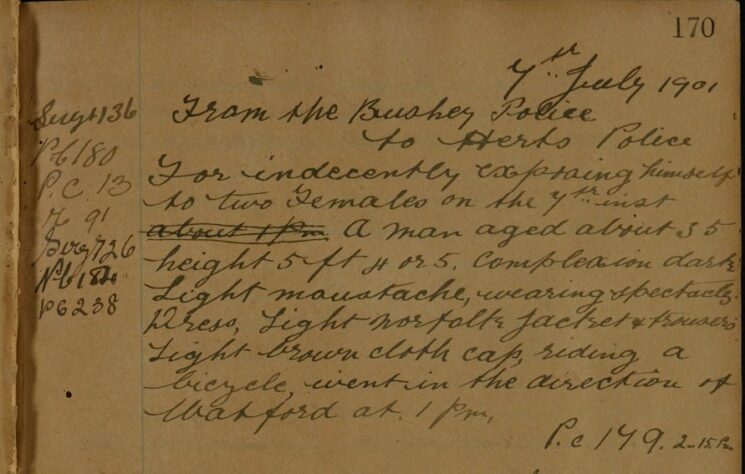 170
7th July 1901
From the Bushey Police
to Herts Police
For indecently exposing himself
to two Females on the 7th inst
about 1 Pm A man aged about 35
height 5 ft 4 or 5. Complexion dark
Light moustache, wearing spectacles.
Dress, Light Norfolk Jacket & trousers
Light brown cloth cap, riding a
bicycle, went in the direction of
Watford at. 1 Pm,
P.c 179. 2-15 Pm
Sergt 136
Pc 180
P.C. 13
91
Serg 726
Pc 184
Pc 238